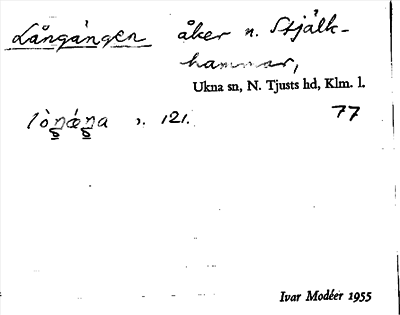 Långängen åker n. Stjälk-
hammar,
Ukna sn, N. Tjusts hd, Klm. l.
lòŋǽŋa 121. 77
Ivar Modéer 1955